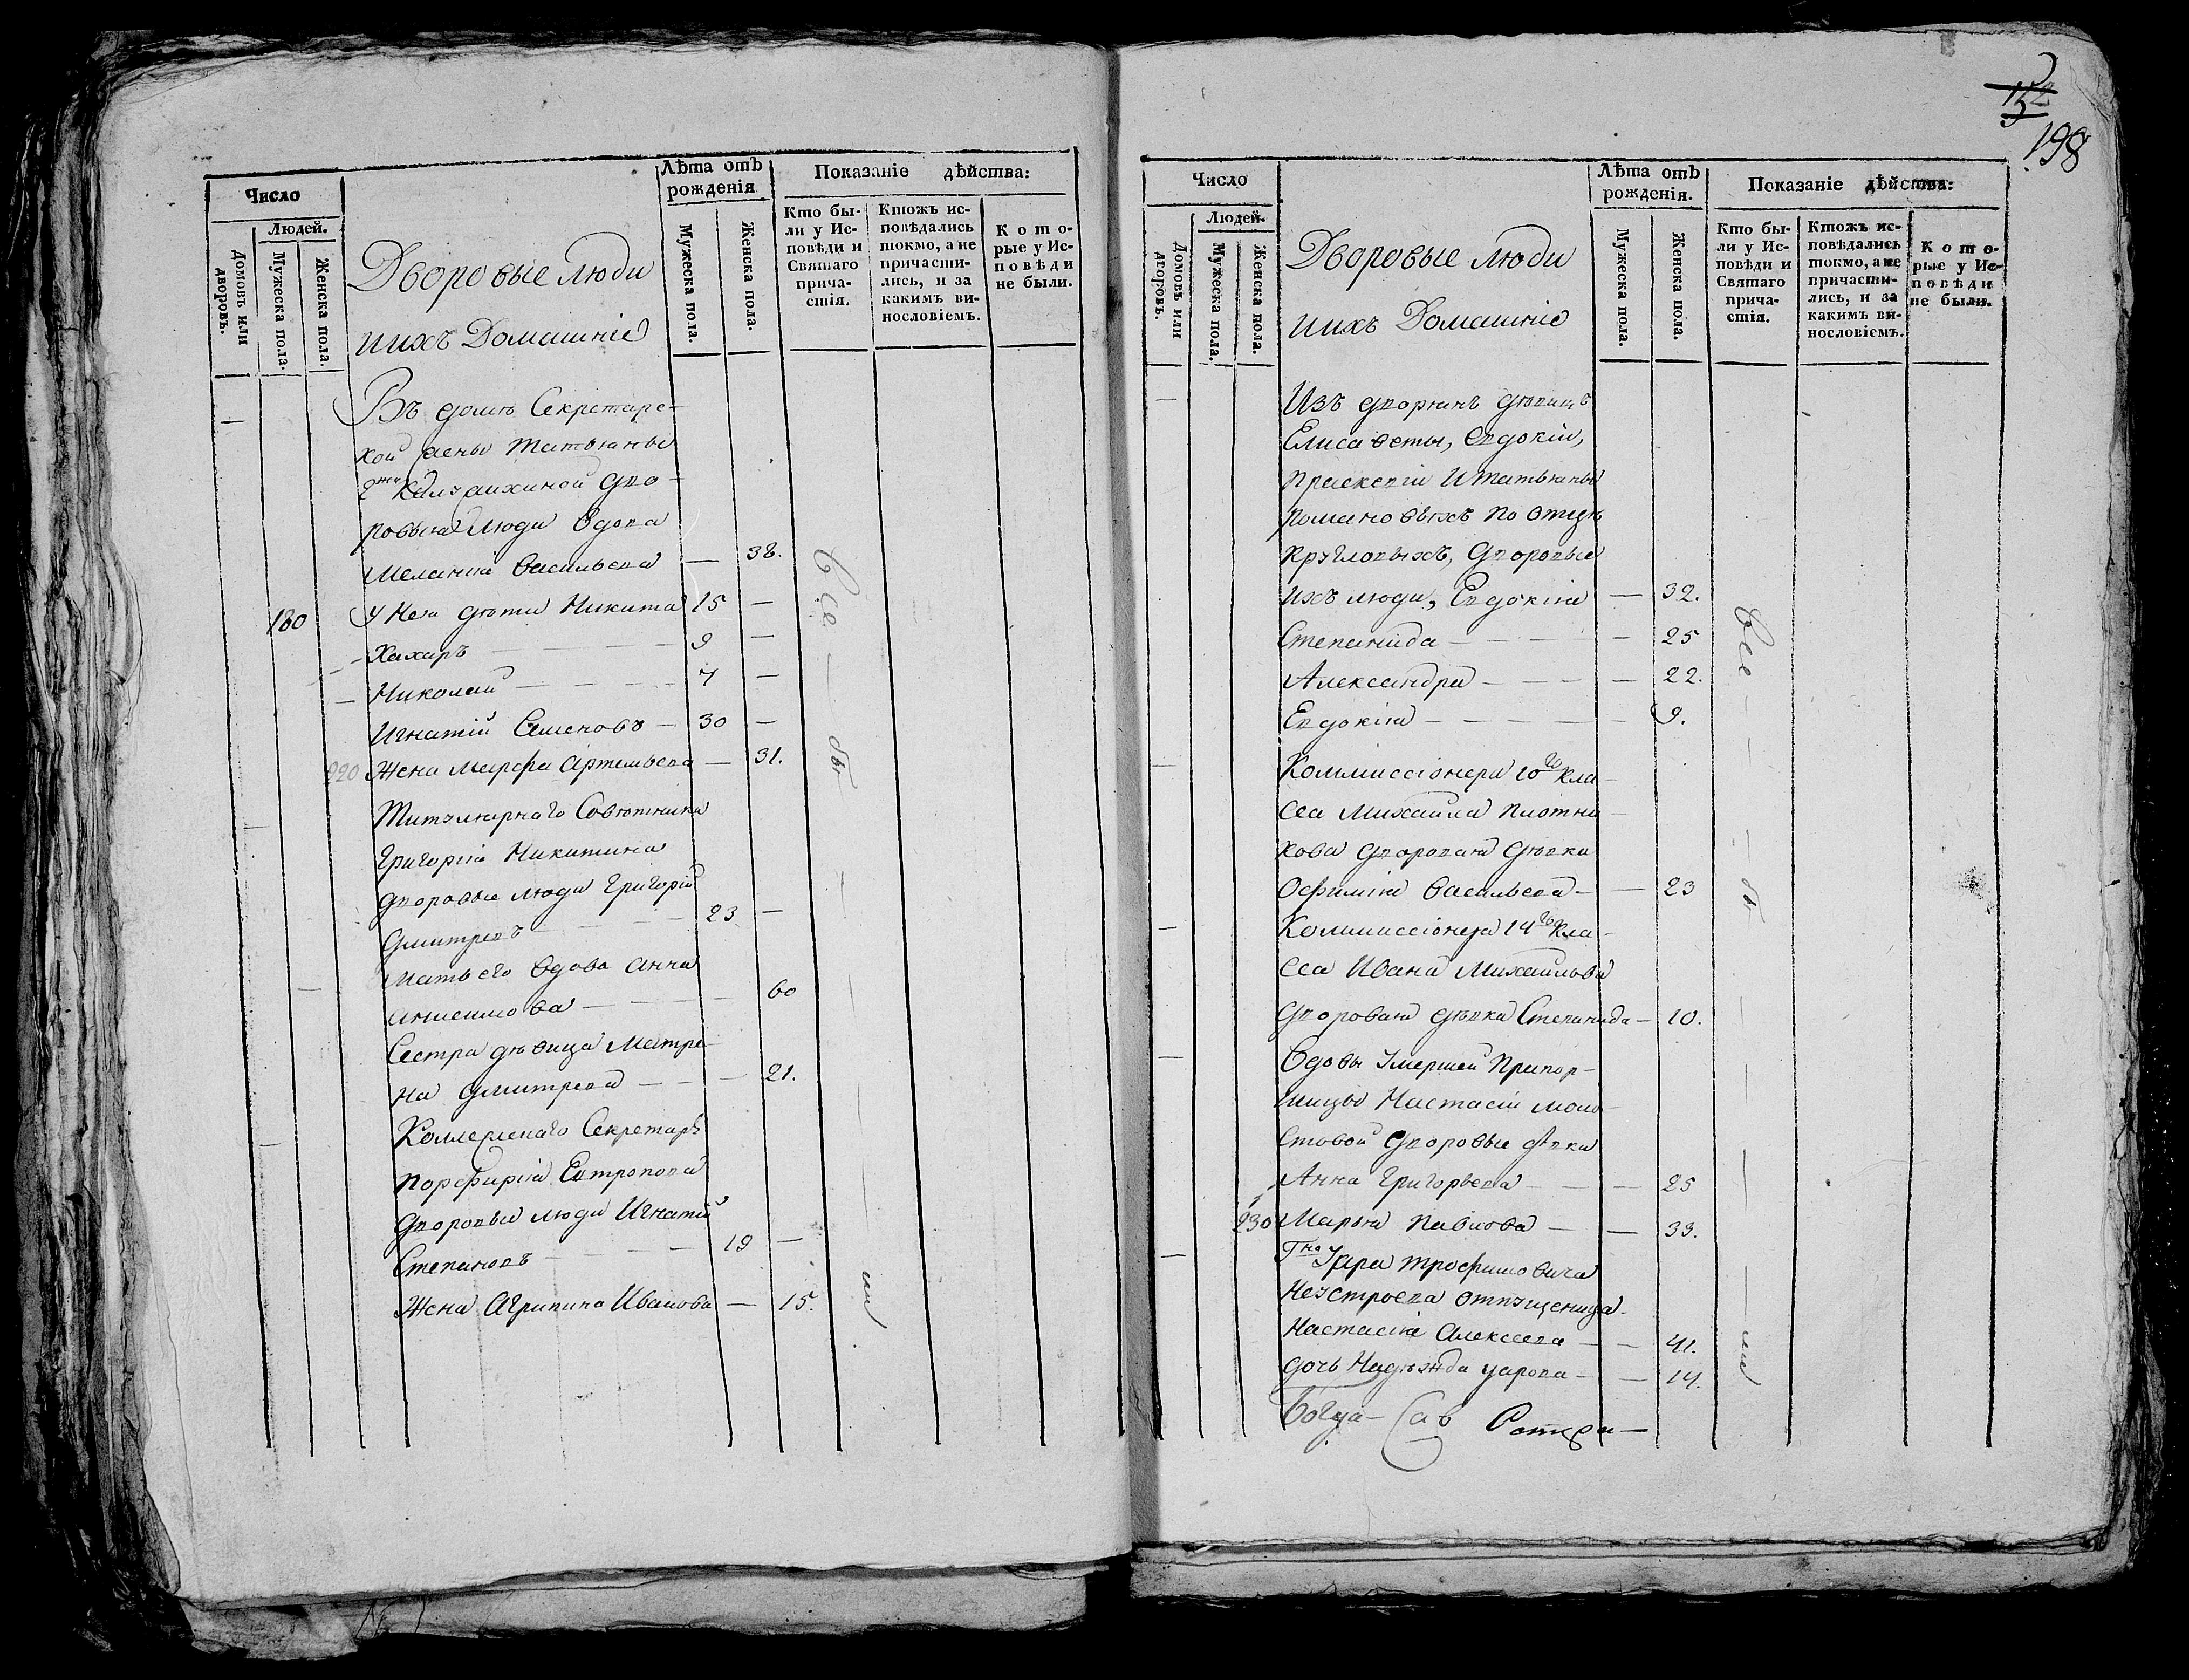 Число
Людей.
Домовъ или дворовъ.
Мужеска пола.
Женска пола.
Дворовые люди
и ихъ Домашніе
Лѣта отъ рожденія
Мужеска пола.
Женска пола.
Показаніе дѣйства:
Кто бы-
ли у Ис-
повѣди и
Святаго
прича-
стія.
Ктожъ ис-
повѣдались
токмо, а не
причасти-
лись, и за
какимъ ви-
нословіемъ.
Кото-
рые у Ис-
повѣди
не были.
Въ домѣ Секретарс-
кой жены Татьяны
дво-
ровыя люди вдова
Меланія Васильева — 38.
180 У Нея дѣти Никита 15 —
Захаръ 9 —
Николай 7 —
Игнатій Семеновъ — 30 —
220 Жена Марфа Артемьева — 31.
Титулярнаго Совѣтника
Григорія Никитина
дворовые люди Григорій
Дмитревъ 23 —
Мать его вдова Анна
60
Сестра дѣвица Матре-
на Дмитрева — 21.
Коллежскаго Секретаря
Порфирія Евтропова
дворовыя люди Игнатій
Степановъ 19 —
Жена Агрипина Иванова — 15.
Все — бы — ли
198
Число
Людей.
Домовъ или дворовъ.
Мужеска пола.
Женска пола.
Дворовые люди
и ихъ Домашніе
Лѣта отъ рожденія.
Мужеска пола.
Женска пола.
Показаніе дѣйства:
Кто бы-
ли у Ис-
повѣди и
Святаго
прича-
стія.
Ктожъ ис-
повѣдались
токмо, а не
причасти-
лись, и за
какимъ ви-
нословіемъ.
Кото-
рые у Ис-
повѣди
не были.
Изъ дворянъ дѣвицъ
Елисаветы, Евдокіи,
Праскевіи и Татьяны
Романовыхъ по отцѣ
Кругловыхъ, дворовые
ихъ люди, Евдокія — 32.
Степанида — 25
Александра — 22.
Евдокія — 9.
Коммиссіонера 10го кла-
сса Михаила Плотни-
кова дворовая дѣвка
Офимія Васильева — 23
Коммиссіонера 14го кла-
сса Ивана Михайлова
дворовая дѣвка Степанида — 10.
Вдовы Умершей Прапор-
щицы Настасіи Моло-
стовой дворовые дѣвки
Анна Григорьева — 25
230 Марья Павлова — 33.
Гна Уара Трофимовича
Неустроева отпущеница
Настасія Алексеева — 41.
дочь Надѣжда Уарова — 14.
Все — бы — ли